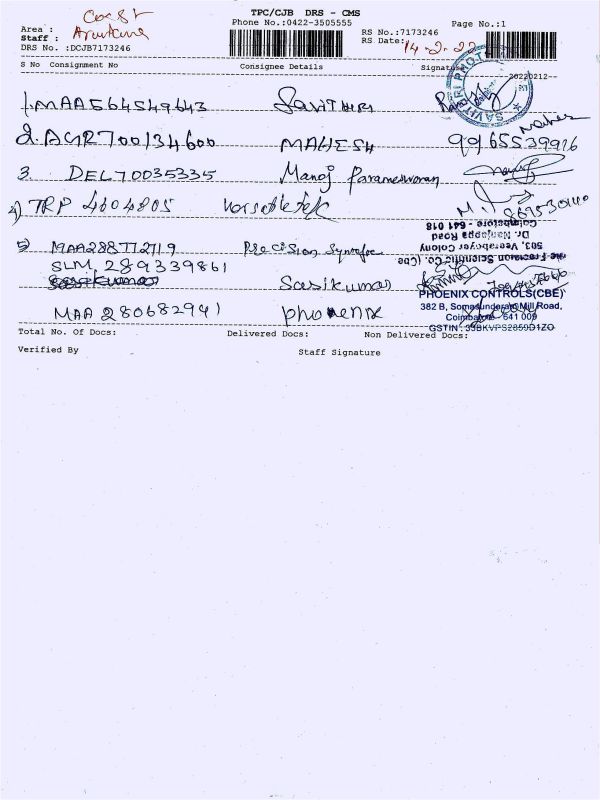 TPC/CJB DRS - CMS
Phone No.:0422-3505555
Page No.:1
Area : Court
Staff :
DRS No. :DCJB7173246
RS No.:7173246
RS Date: 14-2-22
S No Consignment No Consignee Details Signature
20220212
1. MAA564549643 Savithri
2. AGR700134600 MAHESH 9965539916
3. DEL70035335 Manoj Parameswaran
4) TRP 4604805
5) MAA288772719 Precision
SLM 289339861 Sasikumar
Sasikumar
MAA 280682941 phoenix
SAVITHRI PHOTO
The Precision Scientific Co. (Cbe)
503, Veeraboyer Colony
Dr. Nanjappa Road
Coimbatore - 641 018
PHOENIX CONTROLS(CBE)
382 B, Somasundaram Mill Road,
Coimbatore 641 009
GSTIN : 33BKVPS2859D1ZO
Total No. Of Docs: Delivered Docs: Non Delivered Docs:
Verified By Staff Signature